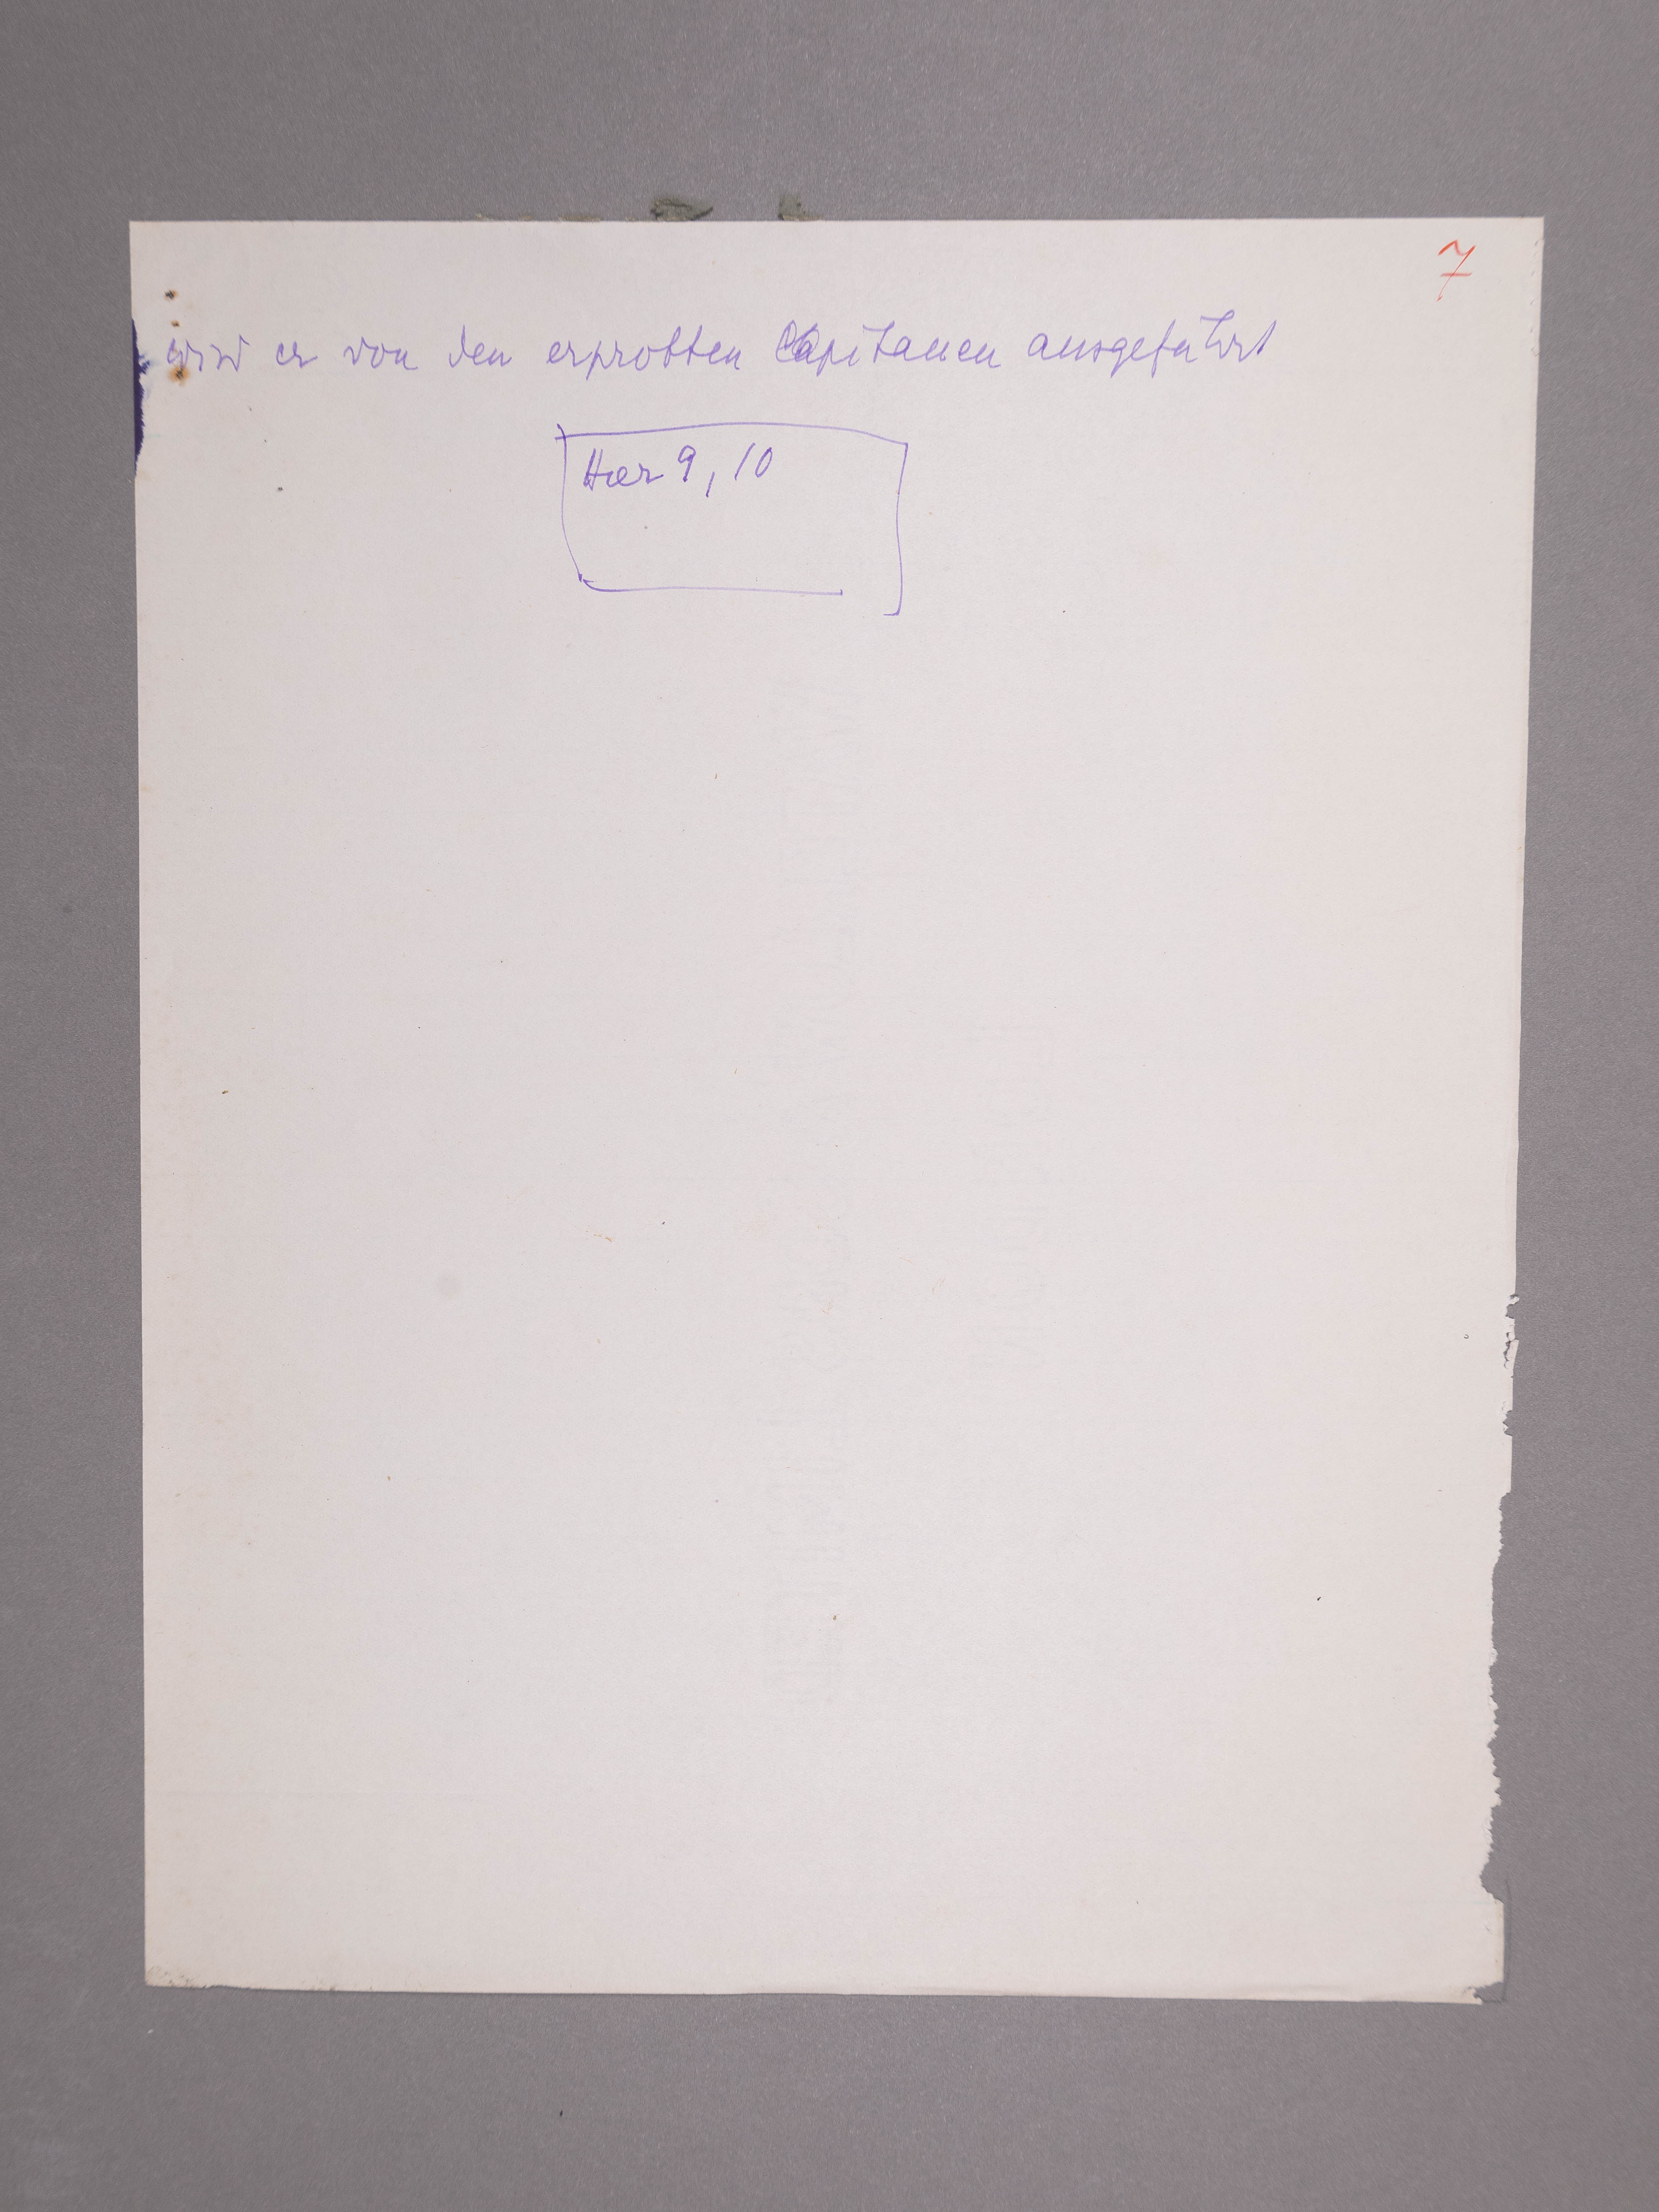 7
wird er von den erprobten Capitanen ausgeführt
Har 9, 10